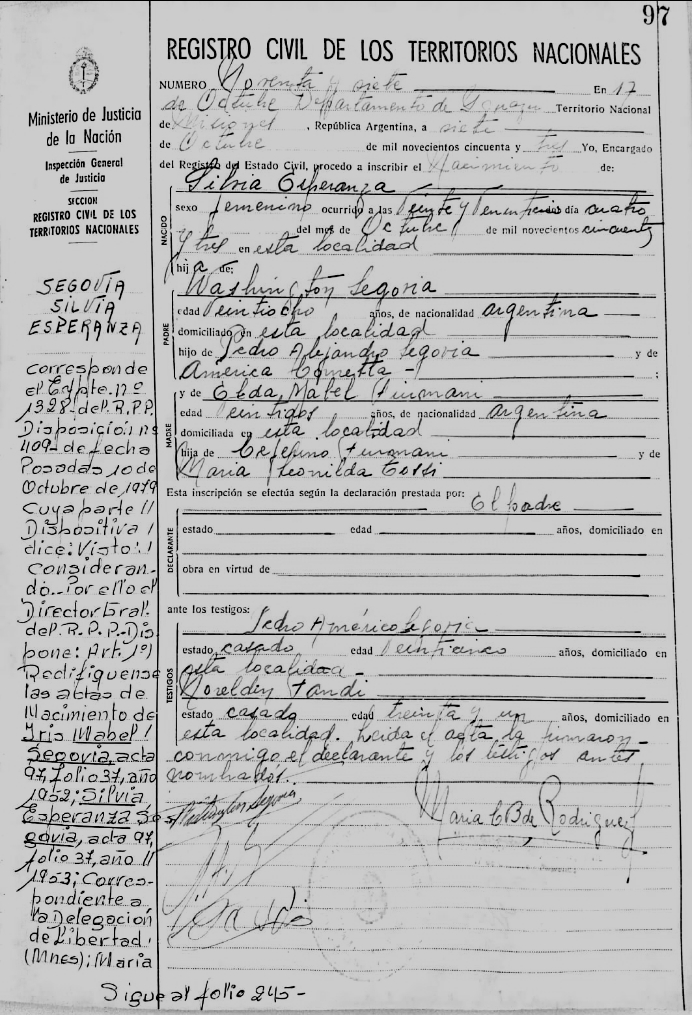 97
REGISTRO CIVIL DE LOS TERRITORIOS NACIONALES
Ministerio de Justicia
de la Nación
Inspección General
de Justicia
SECCION
REGISTRO CIVIL DE LOS
TERRITORIOS NACIONALES
SEGOVIA
SILVIA
ESPERANZA
corresponde
el Expte. nº
1328-del R.P.P.
Disposición nº
409- de fecha
Posadas 10 de
Octubre de 1979
Cuya parte //
Dispositiva /
dice: Visto: /
Consideran-
do.. Por ello el
Director Gral.
del R.P.P.-Dis
pone: Art. 1º)
Rectifiquense
las actas de
Nacimiento de
Iris Mabel /
Segovia, acta
97, folio 37, año
1952; Silvia
Esperanza Se
govia, acta 97,
folio 37, año //
1953; Corres-
pondiente a
la Delegación
de Libertad /
(Mnes); Maria
Sigue al folio 245-
NUMERO Noventa y siete En 17
de Octubre Departamento de Territorio Nacional
de Misiones , República Argentina, a siete
de Octubre de mil novecientos cincuenta y tres Yo, Encargado
del Registro del Estado Civil, procedo a inscribir el Nacimiento de:
NACIDO
Silvia Esperanza
sexo femenino ocurrido a las veinte y día cuatro
del mes de Octubre de mil novecientos cincuenta
y tres en esta localidad
hija de:
PADRE
Washington Segovia
edad veintiocho años, de nacionalidad argentina
domiciliado en esta localidad
hijo de Pedro Alejandro Segovia y de
America :
MADRE
y de Elda Mabel
edad veintidos años, de nacionalidad argentina
domiciliada en esta localidad
hija de y de
Maria Leonilda
Esta inscripción se efectúa según la declaración prestada por: El padre
DECLARANTE
estado edad años, domiciliado en
obra en virtud de
ante los testigos:
TESTIGOS
Pedro Américo Segovia
estado casado edad veinticinco años, domiciliado en
esta localidad-
estado casado edad treinta y un años, domiciliado en
esta localidad. Leida el acta la firmaron-
conmigo el declarante y los testigos antes
nombrados.
Washington Segovia
Maria C B de Rodriguez